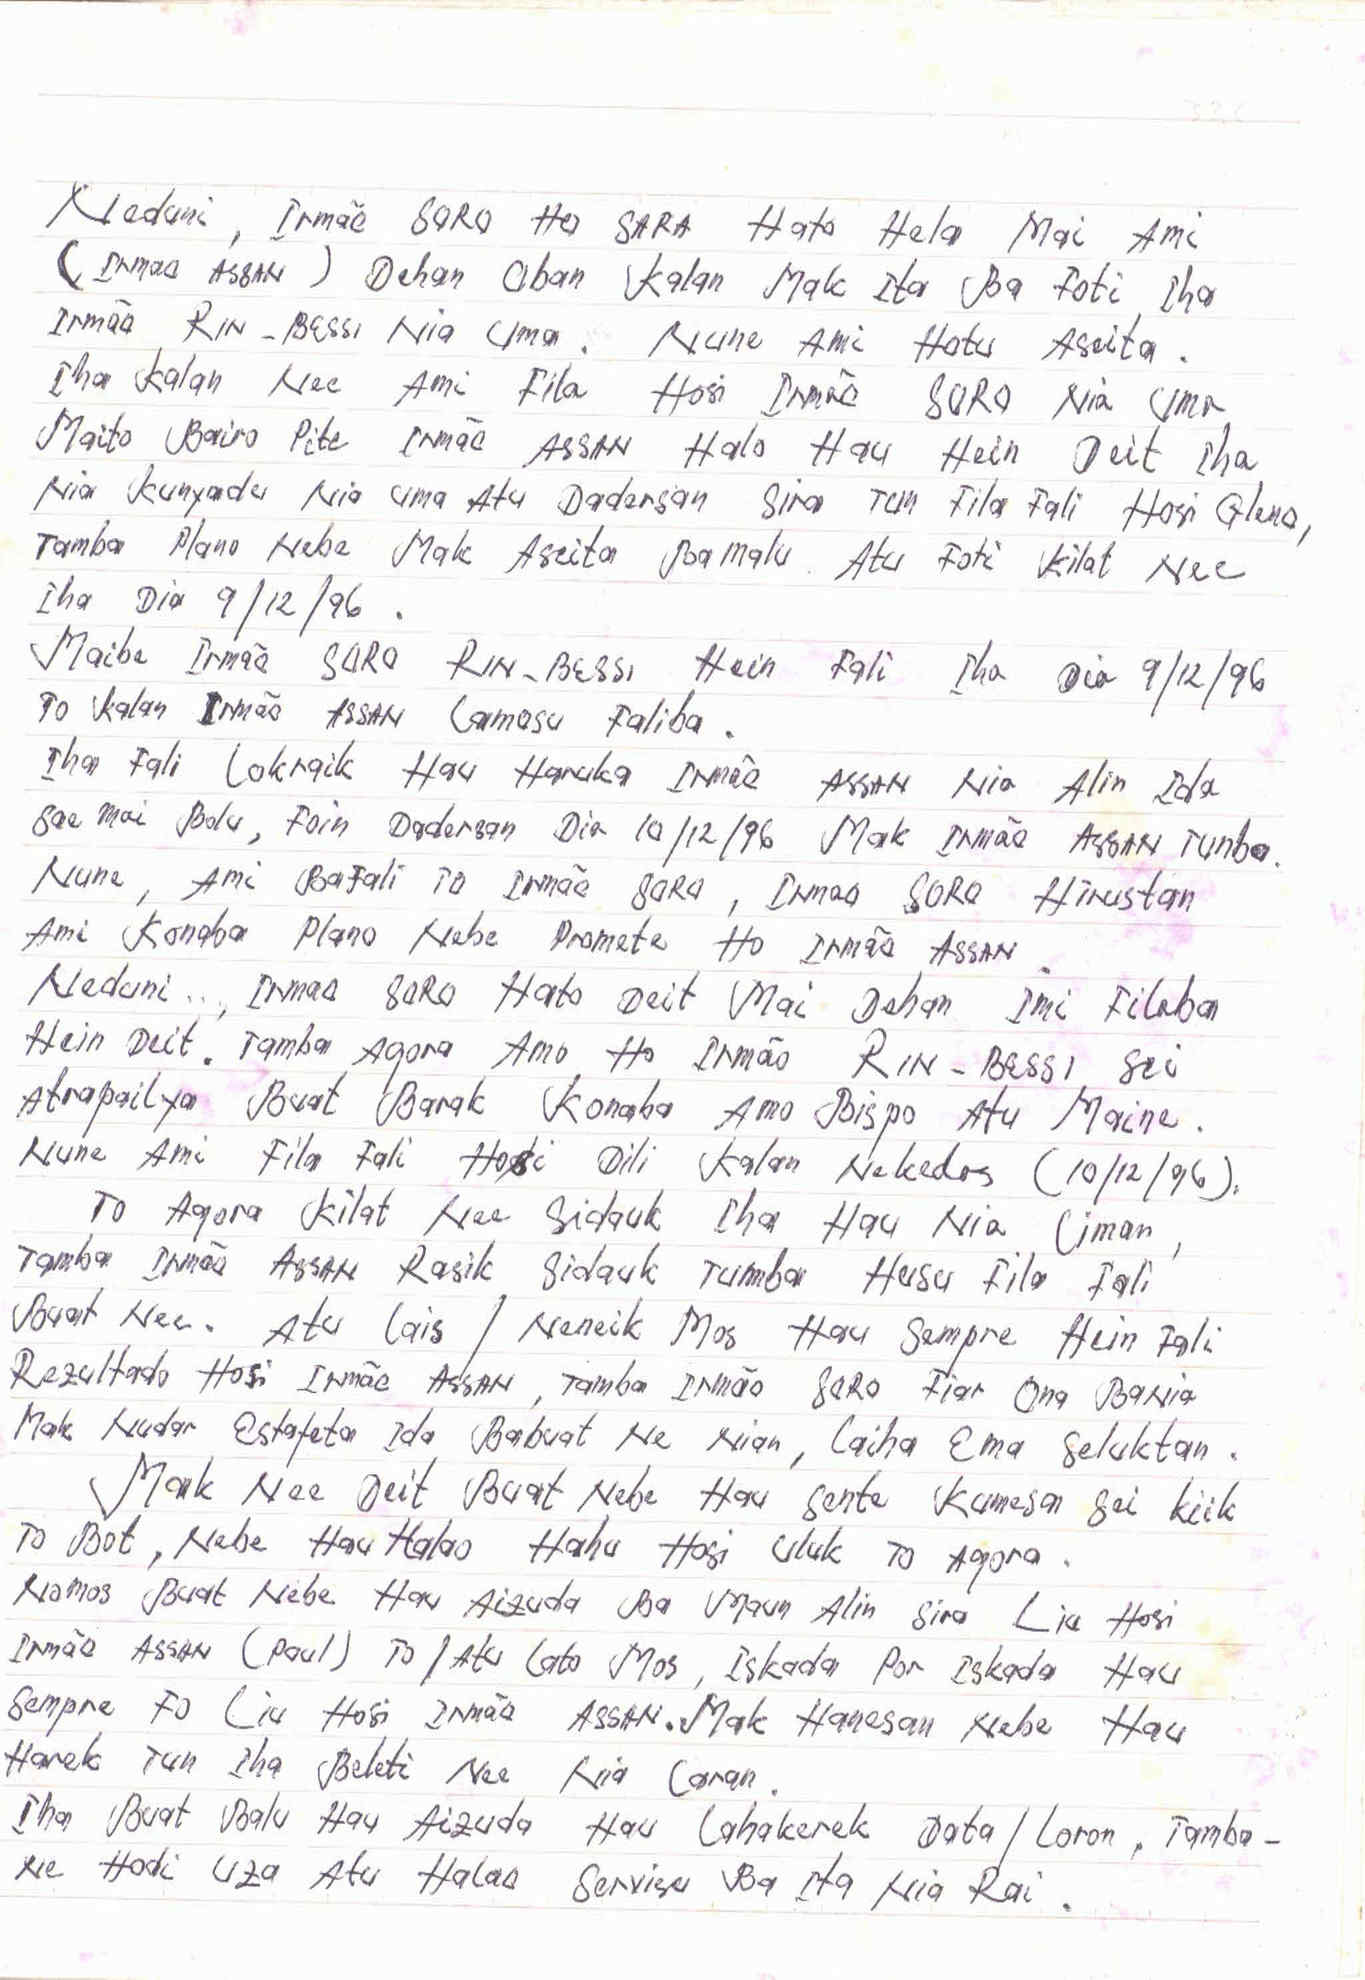 Neduni, Irmão SORO Ho SARA Hato Hela Mai Ami
(Irmao ASSAN) Dehan Oban Kalan Mak Ita Ba Foti Iha
Irmão RIN-BESSI Nia Uma. Nune Ami Hotu Aseita.
Iha Kalan Nee Ami Fila Hosi Irmão SORO Nia Uma
Maito Bairo Pite Irmão ASSAN Halo Hau Hein Deit Iha
Nia Kunyadu Nia Uma Atu Dadersan Sira Tun Fila Fali Hosi Gleno,
Tamba Plano Nebe Mak Aseita Bamalu Atu Foti Kilat Nee
Iha Dia 9/12/96.
Maibe Irmão SORO RIN-BESSI Hein Fali Iha Dia 9/12/96
To Kalan Irmão ASSAN Lamosu Faliba.
Iha Fali Lokraik Hau Haruka Irmão ASSAN Nia Alin Ida
Sae Mai Bolu, Foin Dadersan Dia 10/12/96 Mak Irmão ASSAN Tunba.
Nune, Ami BaFali To Irmão SORO, Irmao SORO Hirustan
Ami Konaba Plano Nebe Promete Ho Irmão ASSAN.
Neduni..., Irmao SORO Hato Deit Mai Dehan Imi Filaba
Hein Deit. Tamba Agora Amo Ho Irmão RIN-BESSI Sei
Atrapailya Buat Barak Konaba Amo Bispo Atu Maine.
Nune Ami Fila Fali Hosi Dili Kalan Nekedas (10/12/96).
To Agora Kilat Nee Sidauk Iha Hau Nia Liman,
Tamba Irmão ASSAN Rasik Sidauk Tumba Husu Fila Fali
Buat Nee. Atu Lais / Neneik Mos Hau Sempre Hein Fali
Rezultado Hosi Irmão ASSAN, Tamba Irmão SORO Fiar Ona BaNia
Mak Nudar Estafeta Ida Babuat Ne Nian, Laiha Ema Seluktan.
Mak Nee Deit Buat Nebe Hau Sente Kumesa Sei Kiik
To Bot, Nebe Hau Halao Hahu Hosi Uluk To Agora.
Nomos Buat Nebe Hau Aizuda Ba Maun Alin Sira Liu Hosi
Irmão ASSAN (Paul) To/Atu Lato Mos, Iskada Por Iskada Hau
Sempre Fo Liu Hosi Irmão ASSAN. Mak Hanesan Nebe Hau
Harek Tun Iha Beleti Nee Nia Laran.
Iha Buat Balu Hau Aizuda Hau Lahakerek Data/Loron, Tamba-
Ne Hodi Uza Atu Halao Servisu Ba Ita Nia Rai.